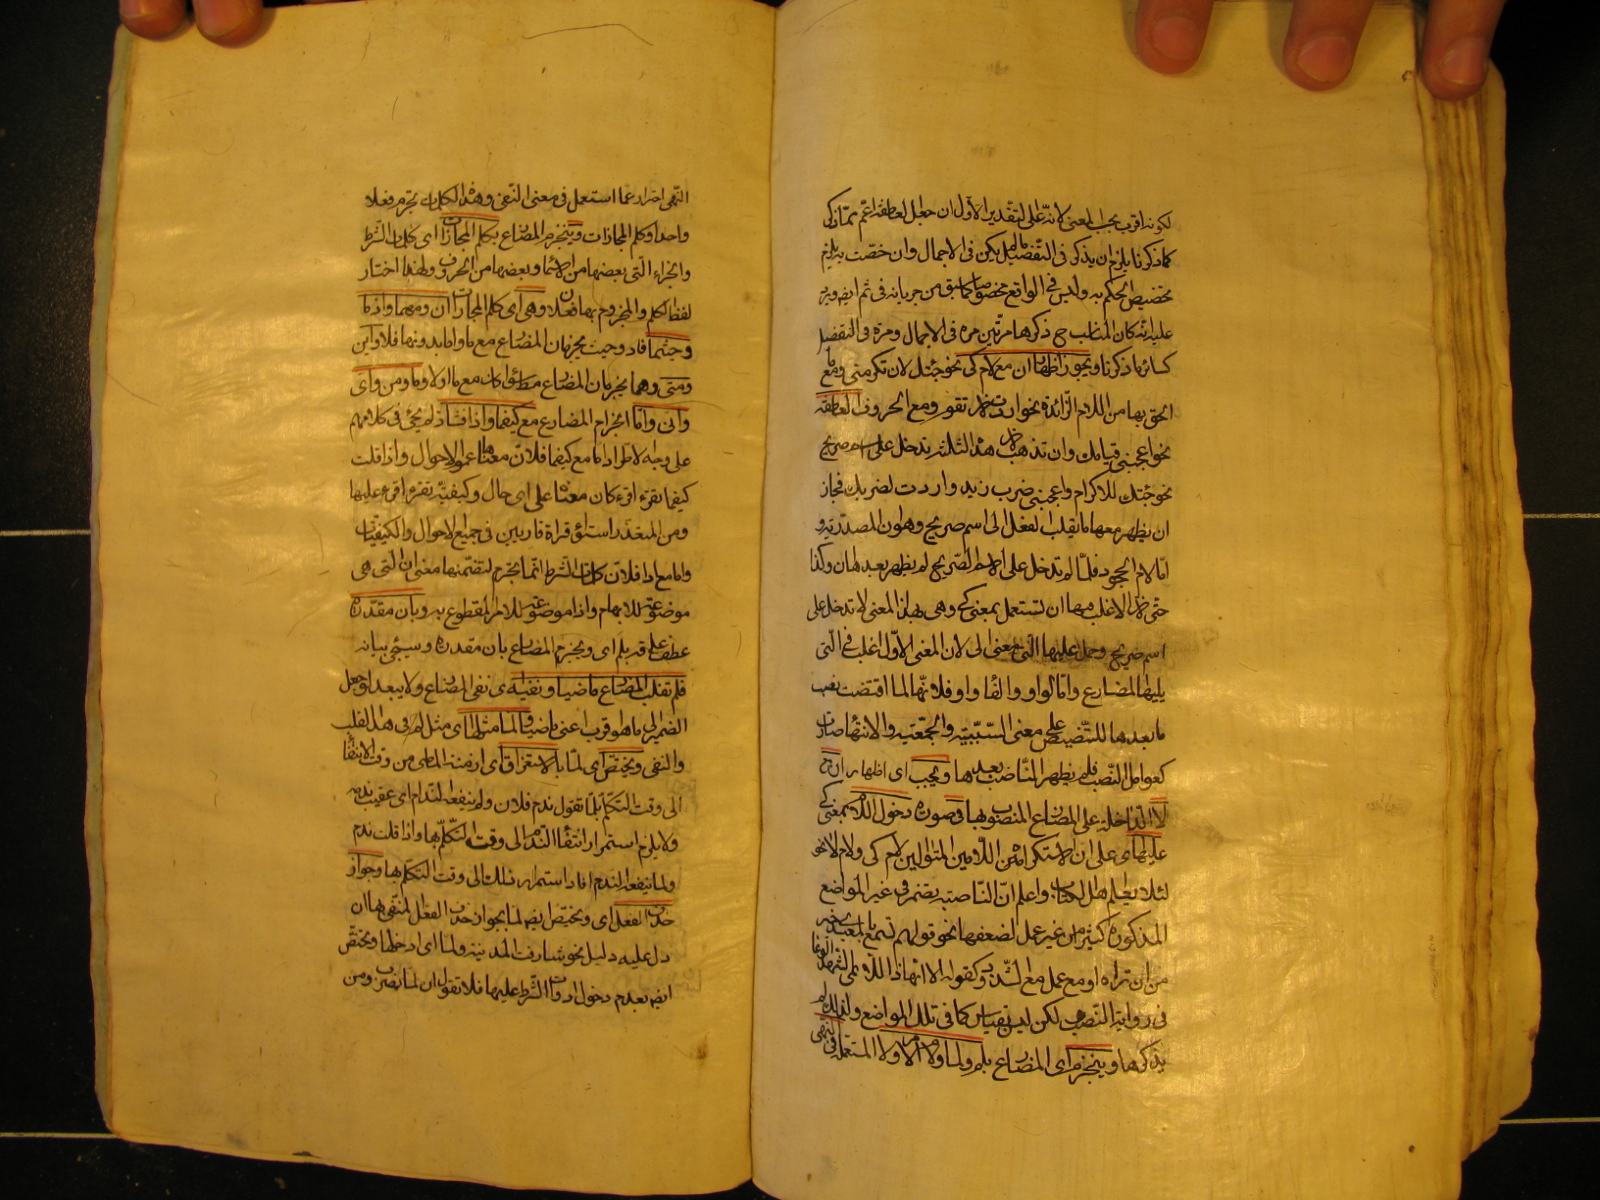 لكونه اقرب بحسب المعنى لانه على التقدير الاول ان جعل العاطفة اعم مما ذكر
كما ذكرنا يلزم ان يذكر في التفصيل ما لم يكن في الاجمال وان خصت به يلزم
تخصيص الحكم به وليس في الواقع مخصوصا كما سبق من جريانه في ثم ايضه ويرد
عليه انه كان المناسب ح ذكرها مرتين مرة في الاجمال ومرة في التفصيل
كسائر ما ذكرنا ويجوز اظهار ان مع لام كي نحو جئتك لان تكرمني ومع ما
الحق بها من اللام الزائدة نحو اردت لان تقوم ومع الحروف العاطفة
نحو اعجبني قيامك وان تذهب لان هذه الثلثة تدخل على اسم صريح
نحو جئتك للاكرام واعجبني ضرب زيد واردت لضربك فجاز
ان يظهر معها ما يقلب الفعل الى اسم صريح وهو ان المصدرية و
اما لام الجحود فلما لم تدخل على الاسم الصريح لم يظهر بعدها ان وكذا
حتى لان الاغلب فيها ان تستعمل بمعنى كي وهي بهذا المعنى لا تدخل على
اسم صريح وحمل عليها التي بمعنى الى لان المعنى الاول اغلب في التي
يليها المضارع واما الواو والفاء واو فلانها لما اقتضت نصب
ما بعدها للتنصيص على معنى السببية والجمعية والانتهاء صارت
كعوامل النصب فلم يظهر الناصب بعدها ويجب اى اظهار ان مع
لا الداخلة على المضارع المنصوب بها في صورة دخول اللام بمعنى كي
عليها اى على ان لاستكراههم اللامين المتواليين لام كي ولام لا نحو
لئلا يعلم اهل الكتاب واعلم ان الناصبة يضمر في غير المواضع
المذكورة كثيرا من غير عمل لضعفها نحو قولهم تسمع بالمعيدي خير
من ان تراه او مع عمل مع الشذوذ كقوله الا ايهذا اللائمي اشهد الوغا
في رواية النصب لكن ليس بقياس كما في تلك المواضع ولذلك لم
يذكرها وينجزم اى المضارع بلم ولما ولام الامر ولا المستعملة في النهى
النهى احتراز عما استعمل في معنى النفى وهذه الكلمات تجزم فعلا
واحدا وكلم المجازات وينجزم المضارع بكلم المجازات اى كلمات الشرط
والجزاء التي بعضها من الاسماء وبعضها من الحروف ولهذا اختار
لفظ الكلم والمجزوم بها فعلان وهى اى كلم المجازات ان ومهما واذما
وحيثما فاذ وحيث يجزمان المضارع مع ما واما بدونها فلا واين
ومتى وهما يجزمان المضارع مطلقا كان مع ما اولا وما ومن واى
وانى واما انجزام المضارع مع كيفما واذا فشاذ لم يجئ في كلامهم
على وجه الاطراد اما مع كيفما فلان معناه عموم الاحوال واذا قلت
كيفما تقرء اقرء كان معناه على اى حال وكيفية تقرء اقرء عليها
ومن المتعذر استواء قراءة قاريين في جميع الاحوال والكيفيات
واما مع اذا فلان كلمات الشرط انما تجزم لتضمنها معنى ان التي هى
موضوعة للابهام واذا موضوعة للامر المقطوع به وبان مقدرة
عطف على قوله بلم اى وينجزم المضارع بان مقدرة وسيجئ بيانه
فلم تقلب المضارع ماضيا ونفيه اى نفى المضارع ولا يبعد لو جعل
الضمير الى ما هو قرب اعنى ماضيا ولما مثلها اى مثل لم في هذا القلب
والنفى ويختص اى لما بالاستغراق اى ازمنة الماضى من وقت الانتفاء
الى وقت التكلم بلما تقول ندم فلان ولم ينفعه الندم اى عقيب ندمه
ولا يلزم استمرار انتفاء الندم الى وقت التكلم بها واذا قلت ندم
ولما ينفعه الندم افاد استمرار ذلك الى وقت التكلم بها وجواز
حذف الفعل اى ويختص ايضه لما بجواز حذف الفعل المنفى بها ان
دل عليه دليل نحو شارفت المدينة ولما اى ادخلها ويختص
ايضه بعدم دخول ادوات الشرط عليها فلا تقول ان لما تضرب ومن